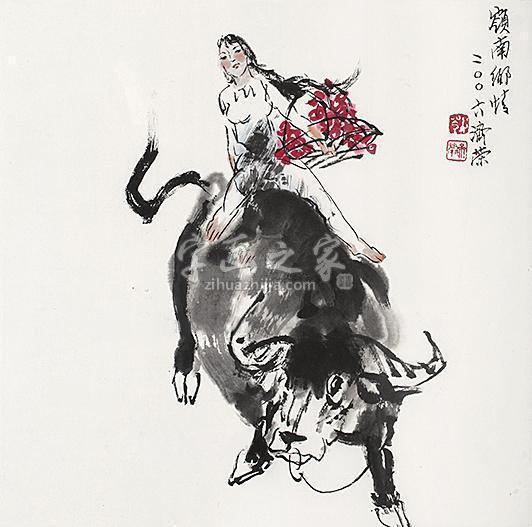 嶺南鄉情
二〇〇六齊榮
字画之家
zihuazhijia.com